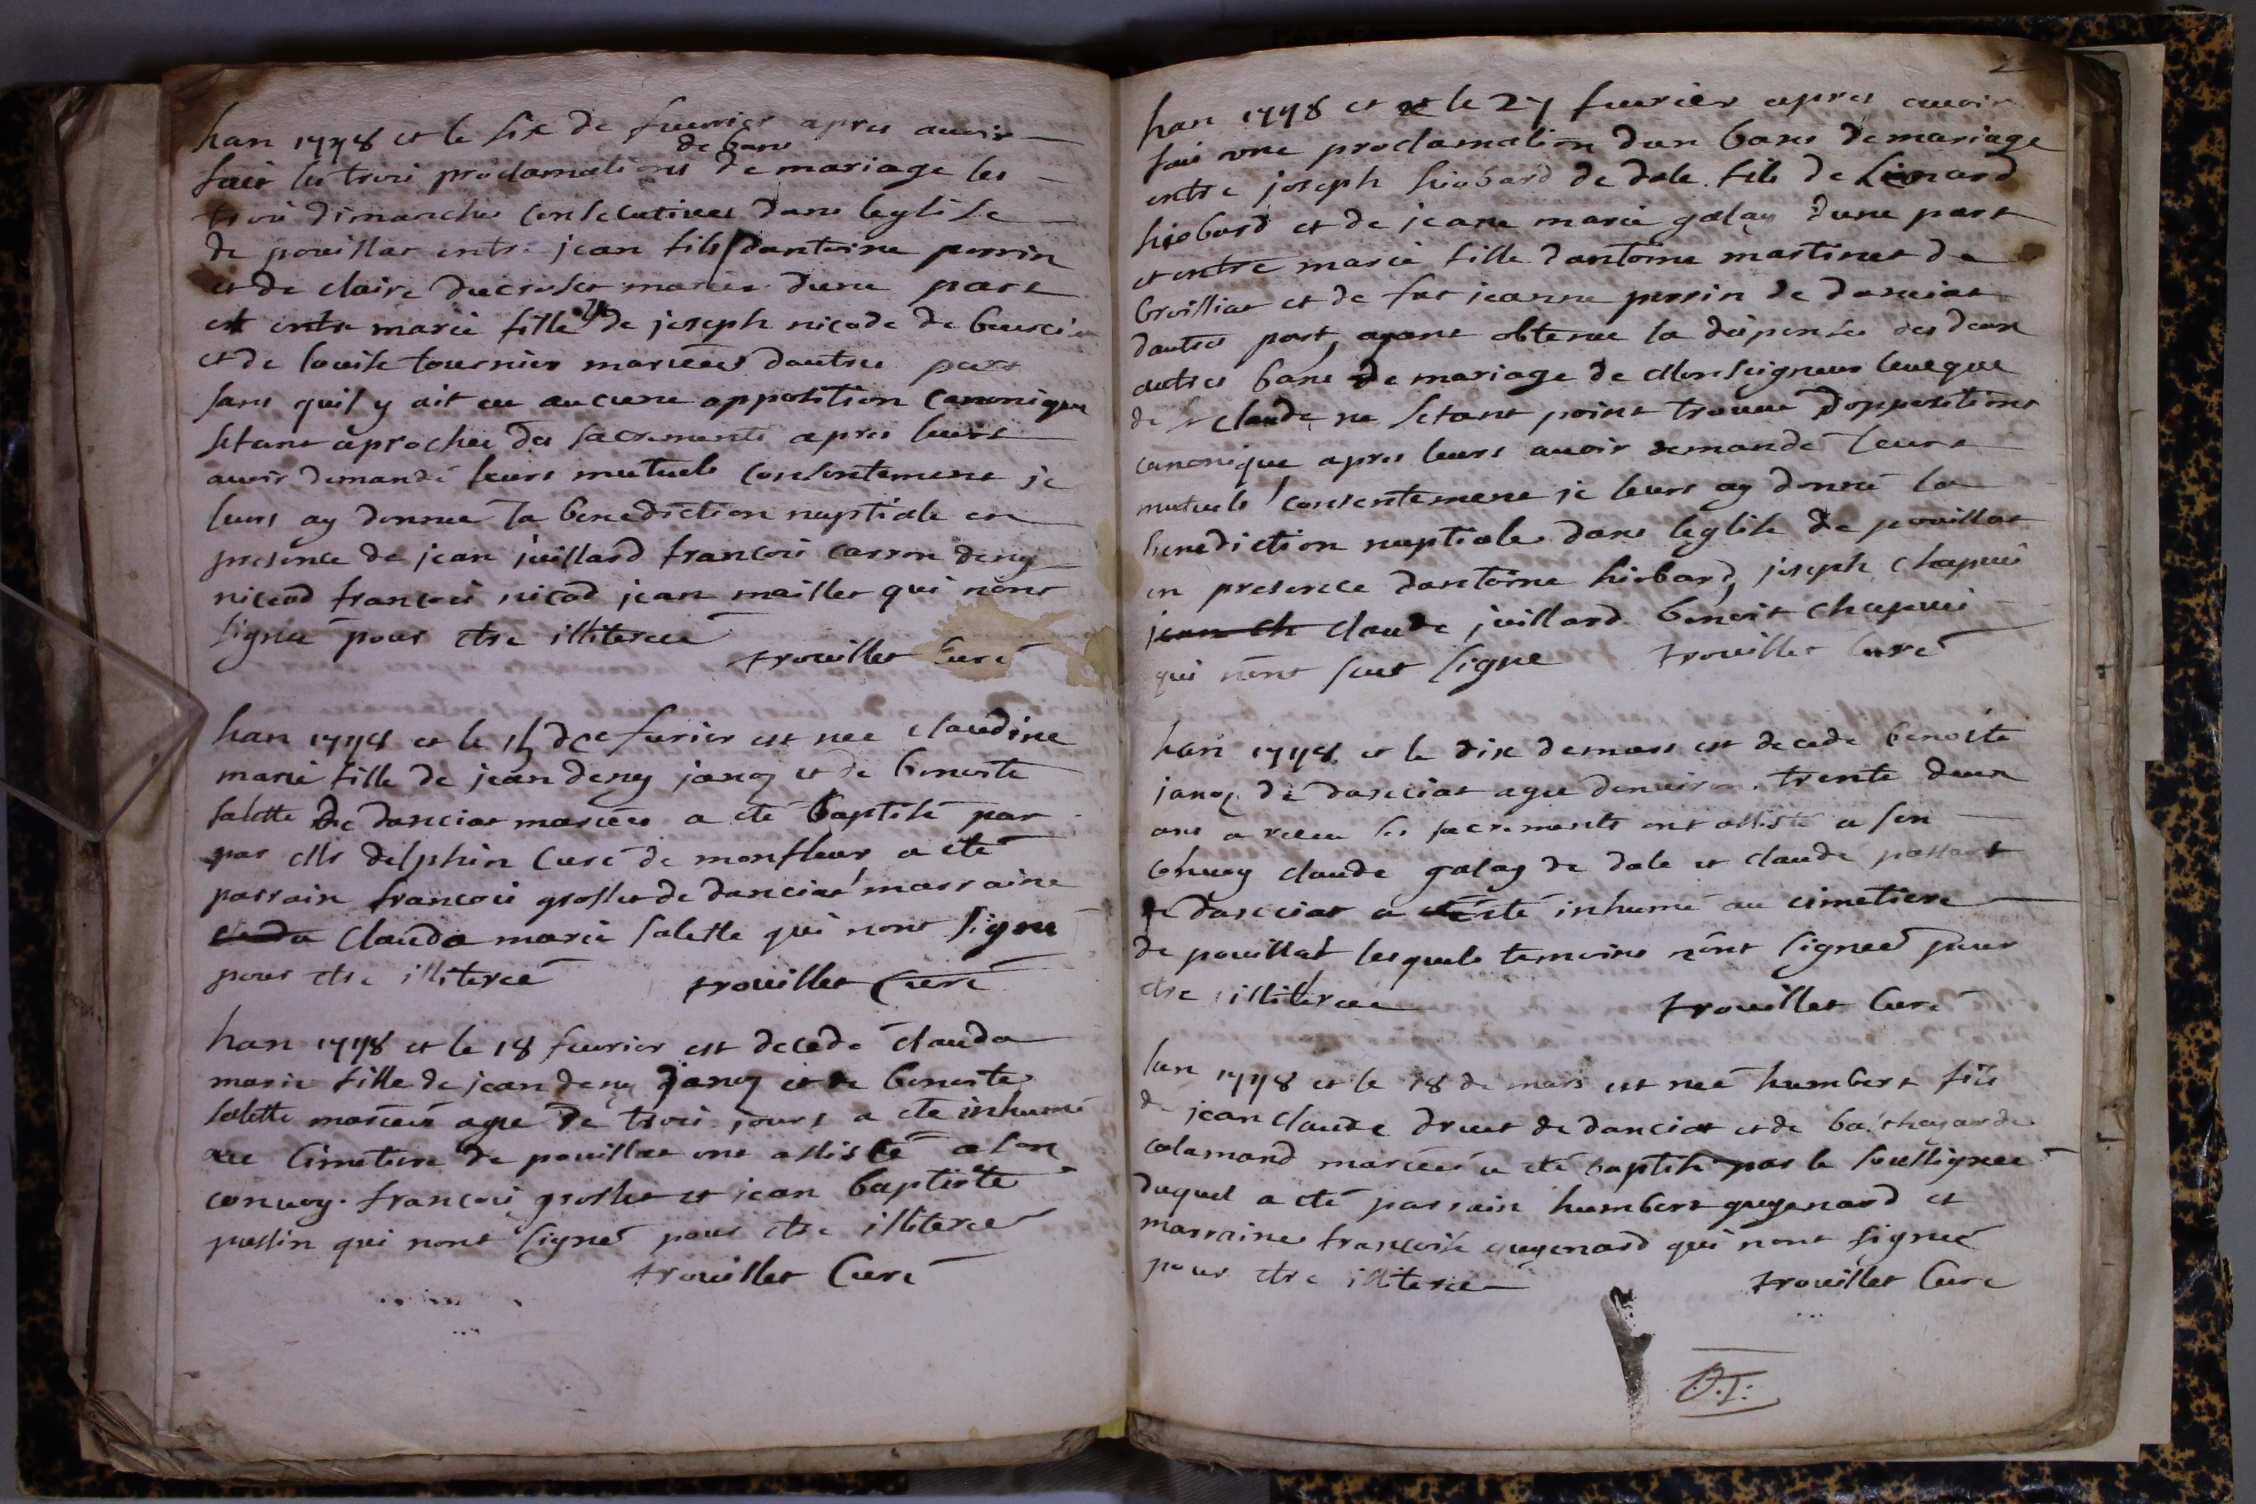 han 1778 et le six de feuvrier apres auoir
de bans
fait les trois proclamations de mariage les
trois dimanches consecutives dans leglise
de pouillat entre jean fils dantoine perrin
et de claire ducruset mariés dune part
et entre marie fille de joseph nicode de
et de louise tournier mariées dautre part
sans quil y ait eu aucune opposition canonique
setant aprochée des sacrements apres leurs
auoir demandé leurs mutuels consentement je
leurs ay donnee la benediction nuptiale en
presence de jean juillard francois carron deny
nicod francois nicod jean maillet qui nont
signee pour etre illiteree
trouillet Curé
han 1778 et le 15 de feurier est nee claudine
marie fille de jean deny janoy et de benoite
salette de danciat mariees a eté baptisé par
par Mr delphin Curé de monfleur a eté
parrain francois groslet de danciat marraine
clauda clauda marie salette qui nont signe
pour etre illiteree trouillet Curé
han 1778 et le 18 feuvrier est decede clauda
marie fille de jean deny janoy et de benoite
salette mariees agee de trois jours a eté inhumé
au Cimetiere de pouillat ont assisté a son
convoy francois groslet et jean baptiste
qui nont signé pour etre illiteree
trouillet Curé
2
han 1778 et le 27 feurier apres auoir
fait une proclamation dun bans de mariage
entre joseph hiobard de dale fils de Lionard
hiobard et de jeane marie galay dune part
et entre marie fille dantoine martinet de
broissiat et de fut jeanne perrin de danciat
dautres part, ayant obtenue la dispenses des deux
autres bans de mariage de Monseigneur leueque
de st claude ne setant point trouuee doppositions
canonique apres leurs auoir demandé leurs
mutuels consentement je leurs ay donnée la
benediction nuptiale dans leglise de pouillat
en presence dantoine hiobard, joseph chapuis
jean ch claude juillard benoit chapuis
qui nont scut signe trouillet Curé
han 1778 et le dix demars est decede benoite
janoy de danciat agee denuiron trente deux
ans a receu les sacrements ont assisté a son
convoy claude galay de dale et claude
de danciat a eté inhumé au cimetiere
de pouillat lesquels temoins nont signee pour
etre illiteree trouillet Curé
lan 1778 et le 18 de mars est neé humbert fils
de jean claude druet de danciat et de
calamard mariées a eté baptisé par le soussignee
duquel a eté parrain humbert guyenard et
marraine francoise guyenard qui nont signeé
pour etre illiteree trouillet Curé